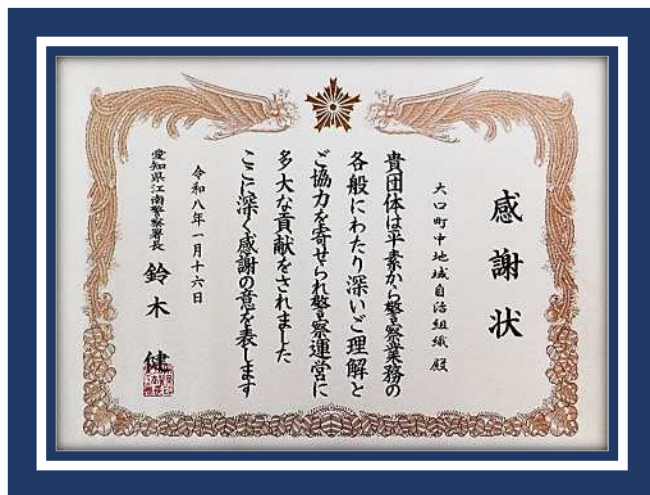 感謝状
大口町中地域自治組織 殿
貴団体は平素から警察業務の
各般にわたり深いご理解と
ご協力を寄せられ警察運営に
多大な貢献をされました
ここに深く感謝の意を表します
令和八年一月十六日
愛知県江南警察署長 鈴木 健